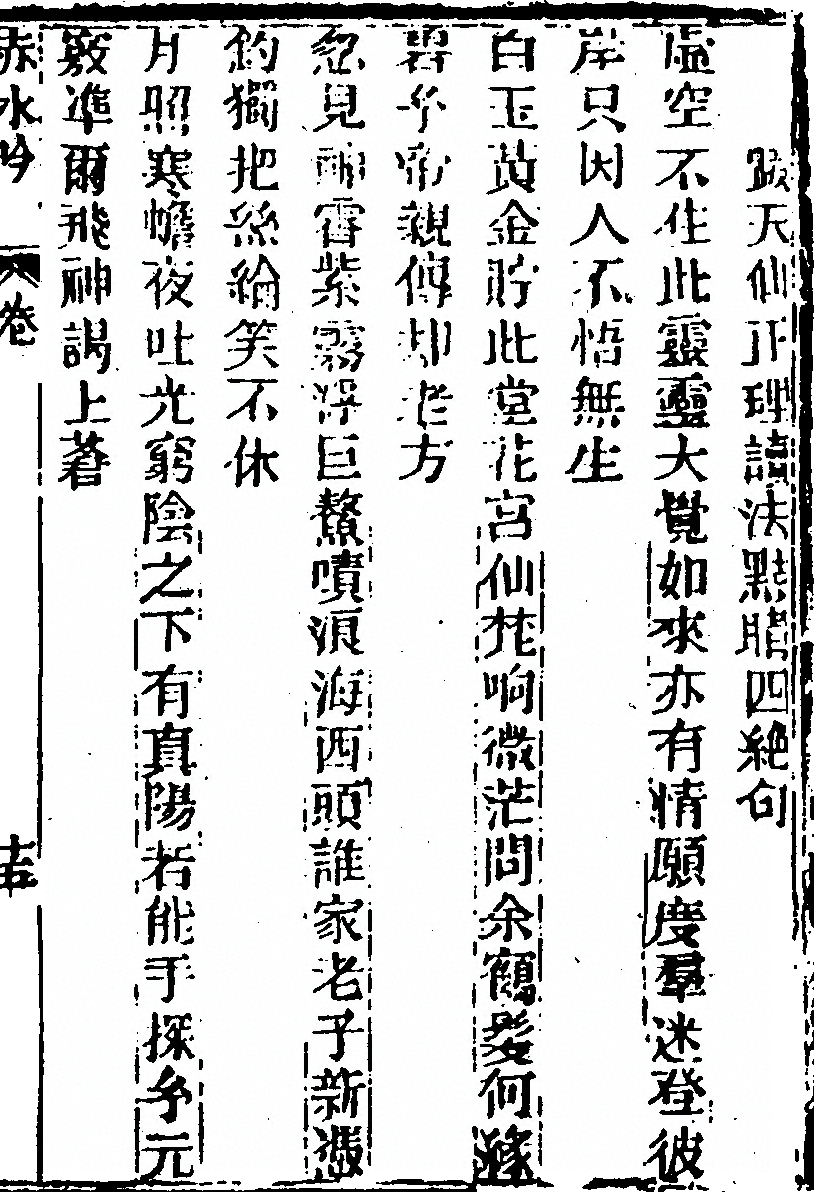 跋天仙正理讀法點睛四絕句
虛空不住此靈靈大覺如來亦有情願度羣迷登彼
岸只因人不悟無生
白玉黃金貯此堂花宮仙梵响微茫問余鶴髮何緣
碧兮帝親傳却老方
忽見神霄紫霧浮巨鰲噴浪海西頭誰家老子新憑
釣獨把絲綸笑不休
月照寒幨夜吐光窮陰之下有真陽若能手探兮元
竅準爾飛神謁上蒼
赤水吟 卷 十五